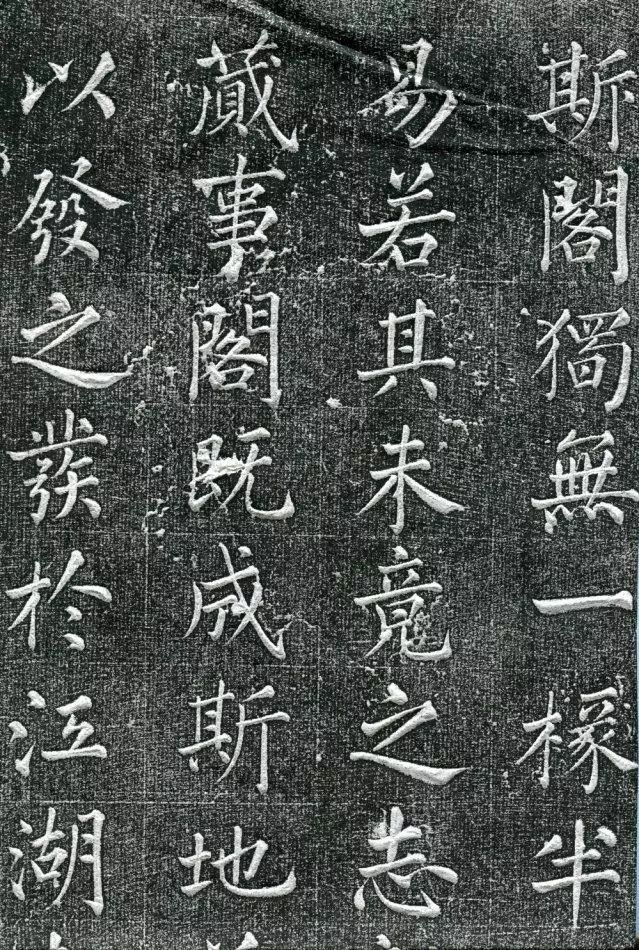 斯閣獨無一椽半
易若其未竟之志
蕆事閣既成斯地
以發之於江湖